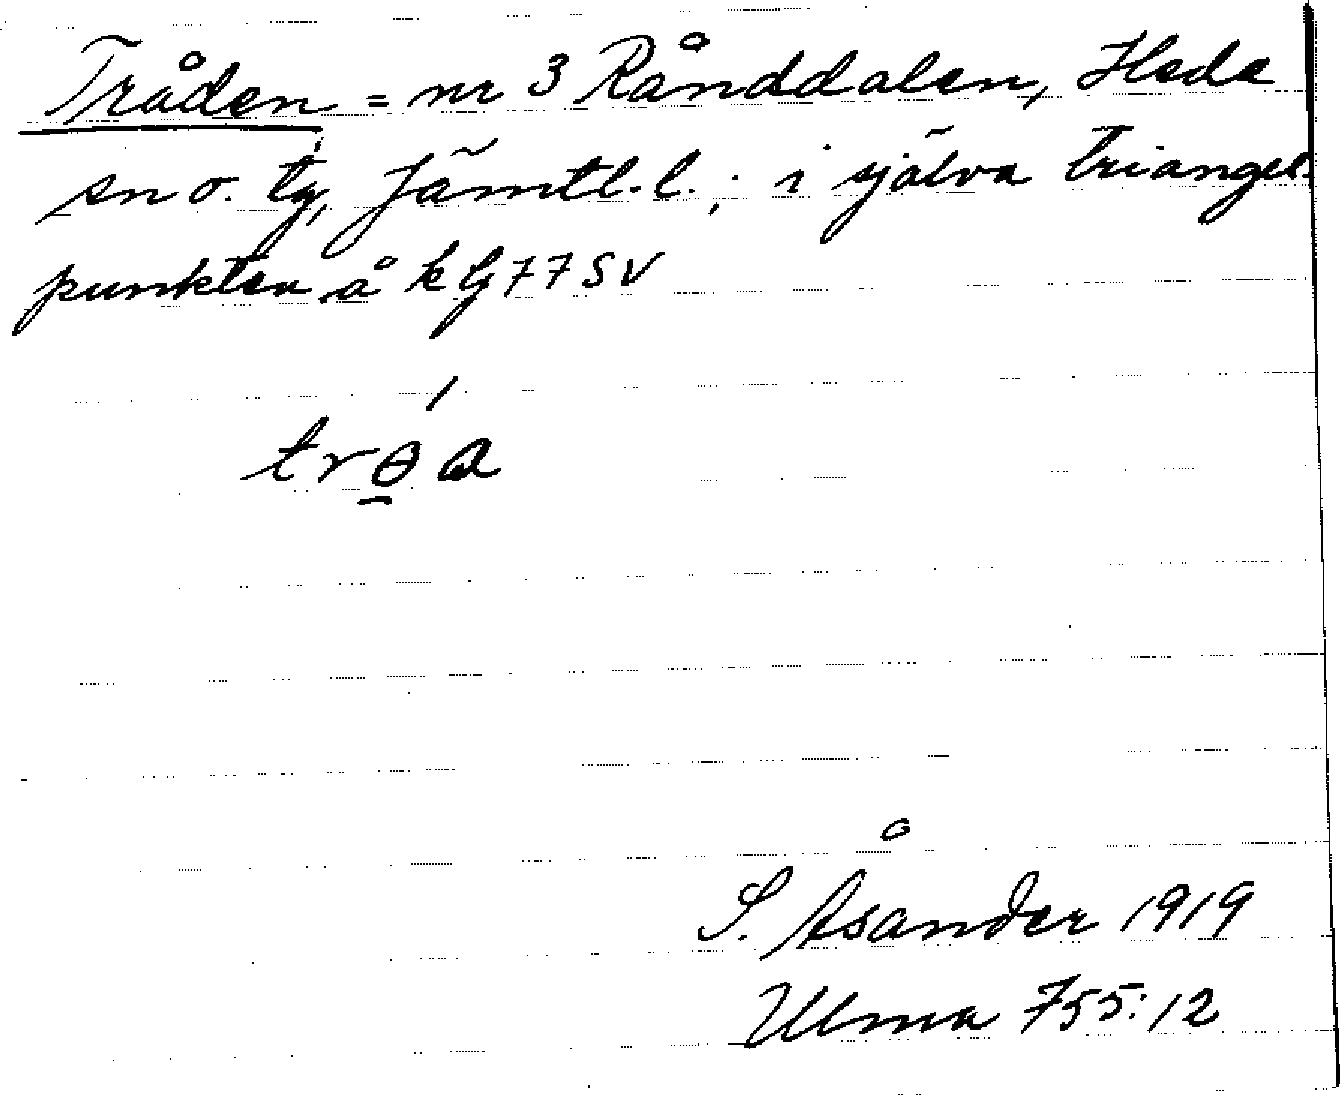 Tråden = nr 3 Rånddalen, Hede
sn o. tg, Jämtl.l.; i själva triangel-
punkten å kbl 77 SV
trɵ́a
S. Åsander 1919
Ulma 755:12